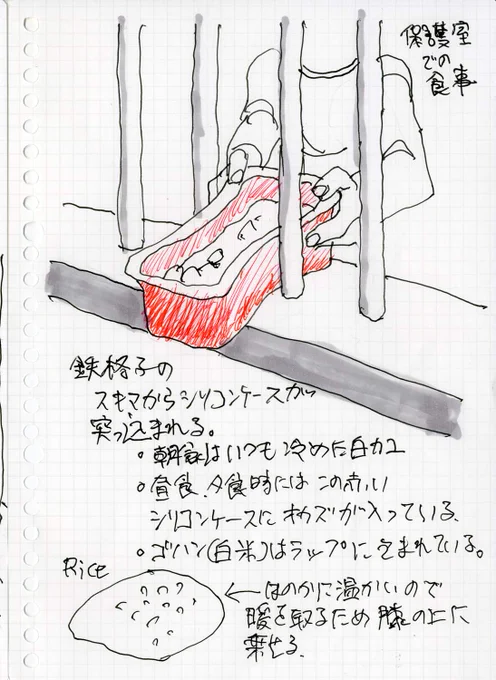 保護室
での
食事
鉄格子の
スキマからシリコンケースが
突っ込まれる。
・朝食はいつも冷めた白カユ
・昼食、夕食時にはこの赤い
シリコンケースにオカズが入っている。
・ゴハン(白米)はラップに包まれている。
Rice
←ほのかに温かいので
暖を取るため膝の上に
乗せる。